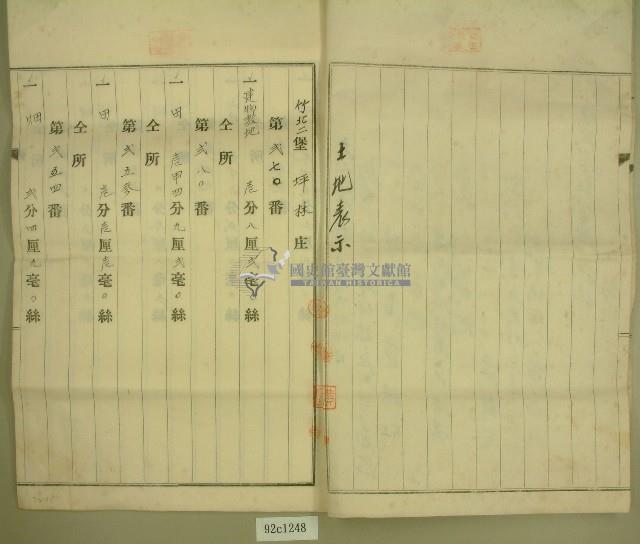 土地表示
竹北二堡 坪林庄
第貳七〇番
一 建物敷地 壱分八厘貳毫〇絲
仝所
第貳八〇番
一 田 壱甲四分九厘貳毫〇絲
仝所
第貳五参番
一 田 壱分壱厘壱毫〇絲
仝所
第貳五四番
一 畑 貳分四厘九毫〇絲
國史館臺灣文獻館
TAIWAN HISTORICA
92c1248